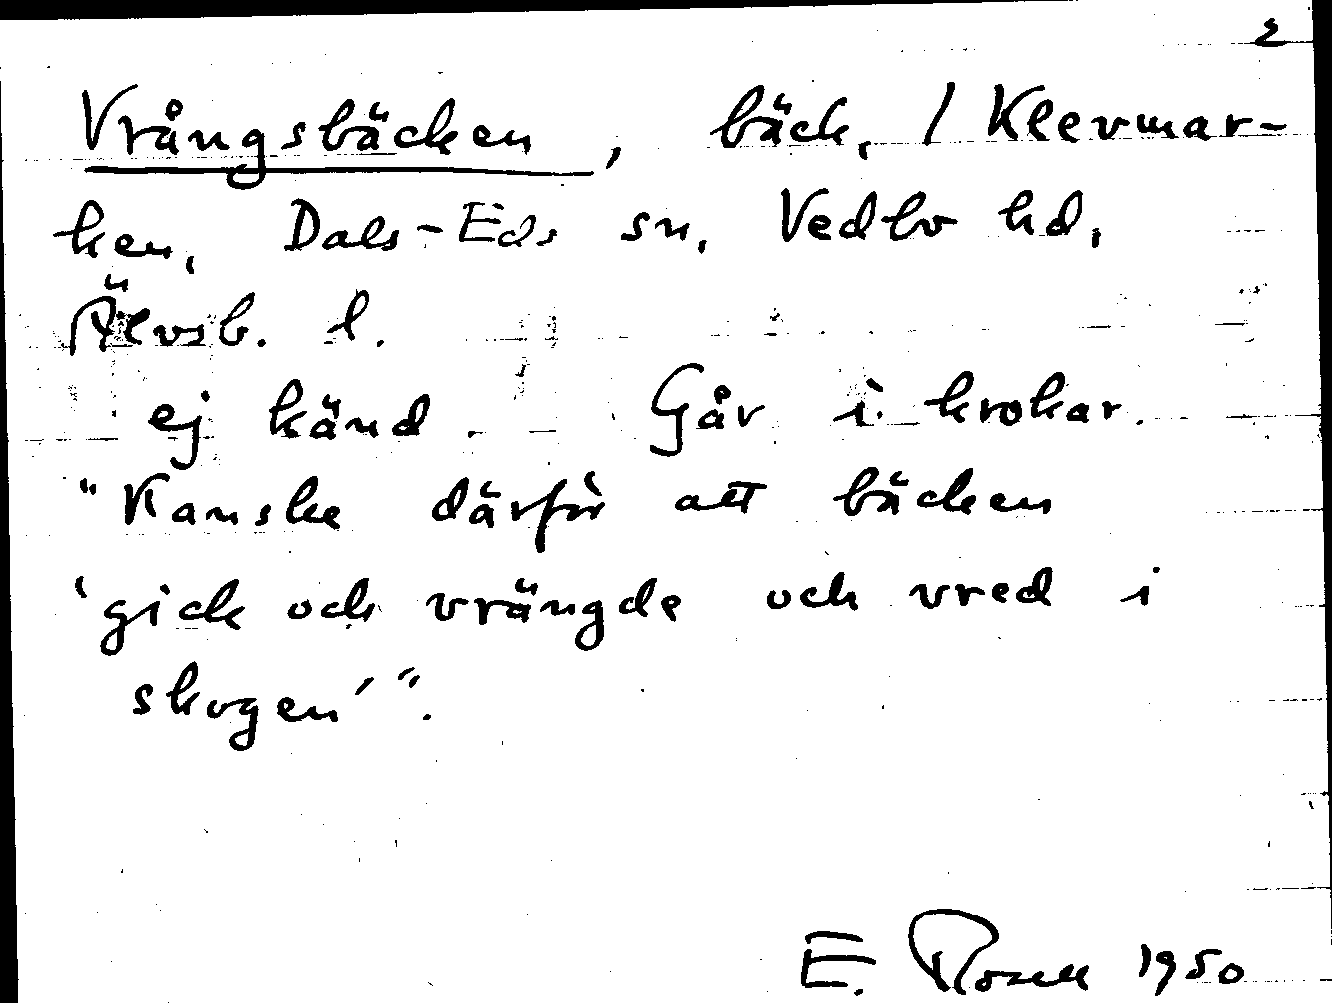 2
Vrångsbäcken, bäck, / Klevmar-
ken, Dals-Eds sn, Vedbo hd,
Älvsb. l.
ej känd. Går i krokar.
"Kanske därför att bäcken
'gick och vrängde och vred i
skogen'".
E. Rosell 1950